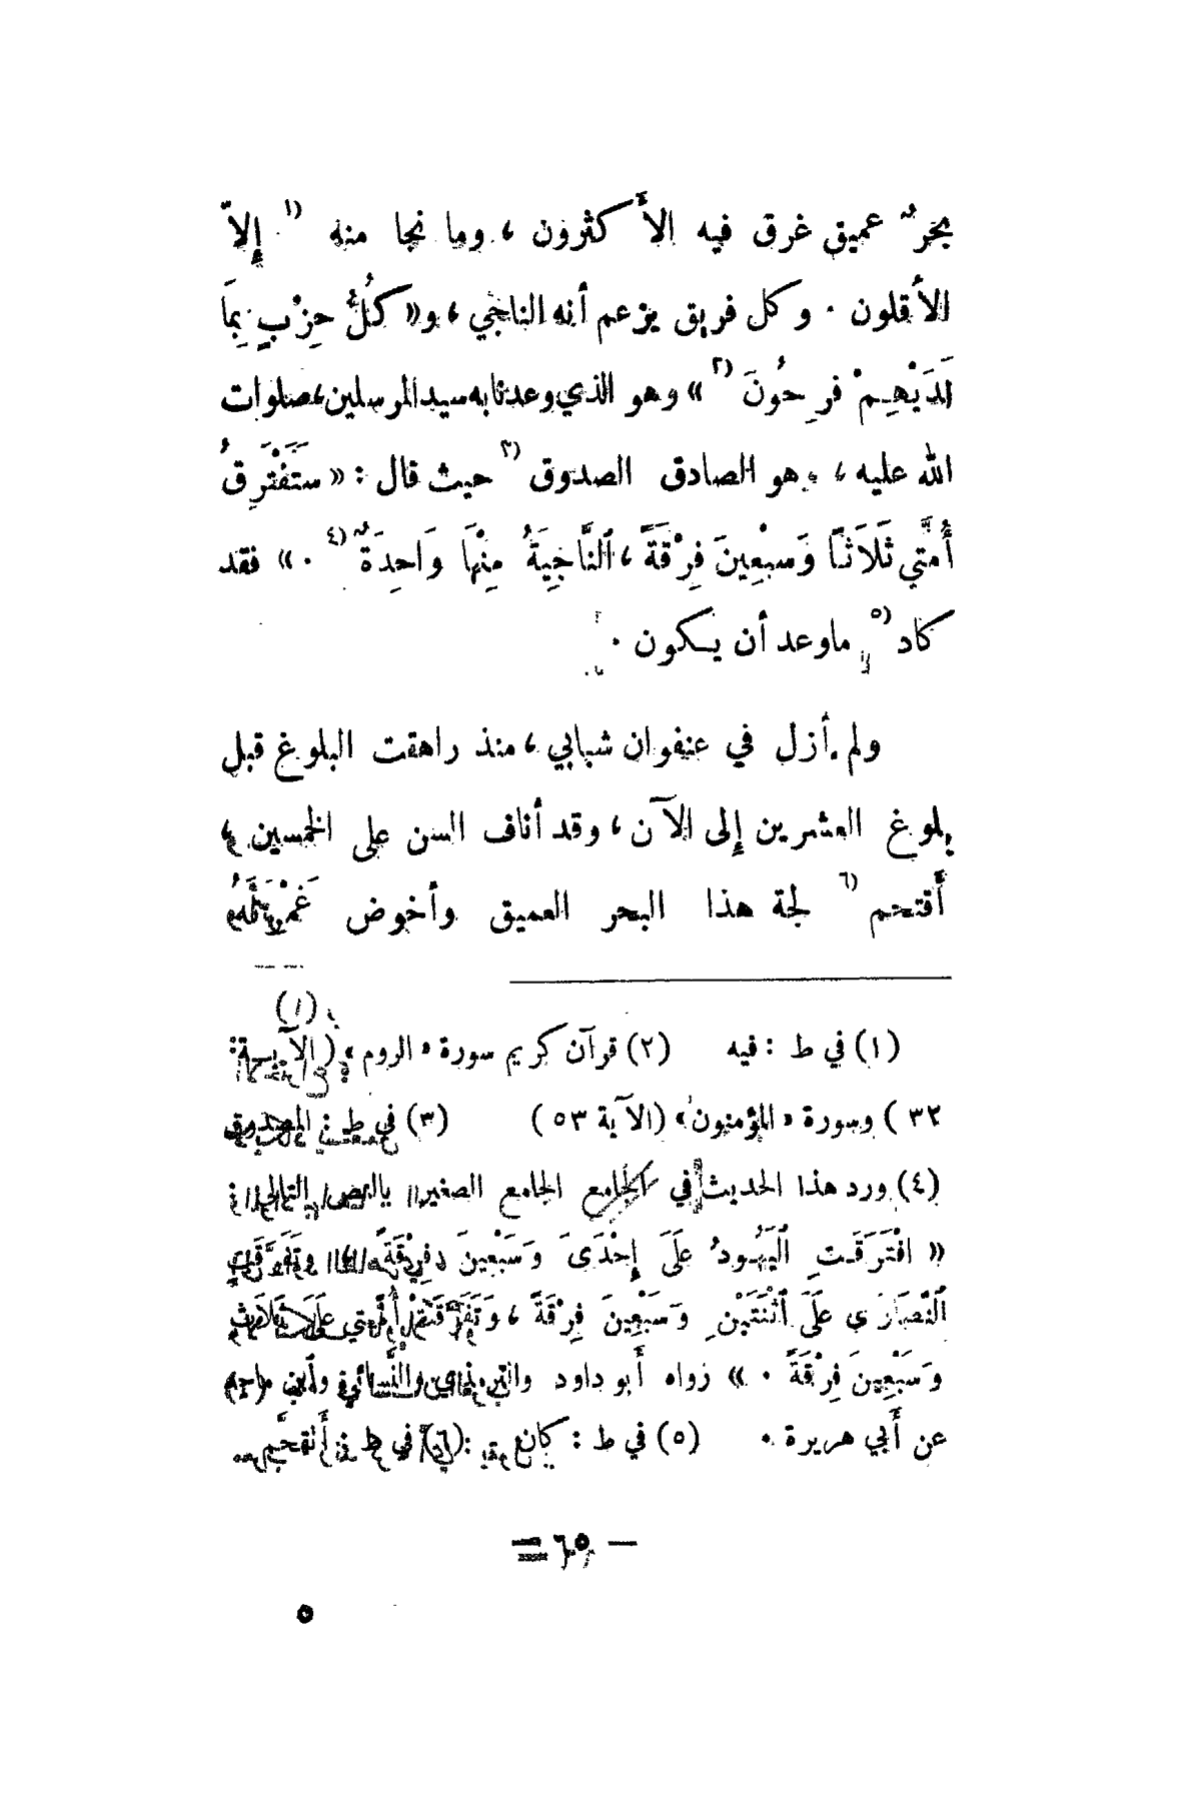 بحرٌ عميق غرق فيه الأكثرون ، وما نجا منه (١ إِلاّ
الأقلون . وكل فريق يزعم أنه الناجي ، و« كُلُّ حِزْبٍ بِمَا
لَدَيْهِمْ فَرِحُونَ (٢ » وهو الذي وعدنا به سيد المرسلين ، صلوات
الله عليه ، وهو الصادق الصدوق (٣ حيث قال : « سَتَفْتَرِقُ
أُمَّتِي ثَلَاثَاً وَسَبْعِينَ فِرْقَةً ، اَلنَّاجِيَةُ مِنْهَا وَاحِدَةٌ (٤ . » فقد
كاد (٥ ماوعد أن يكون .
ولم أزل في عنفوان شبابي ، منذ راهقت البلوغ قبل
بلوغ العشرين إِلى الآن ، وقد أناف السن على الخمسين ،
أَقتحم (٦ لجة هذا البحر العميق وأخوض
(١) في ط : فيه (٢) قرآن كريم سورة « الروم » ( الآية :
٣٢ ) وسورة « المؤمنون » ( الآية ٥٣ ) (٣) في ط : المصدوق
(٤) ورد هذا الحديث في الجامع الصغير بالنص التالي :
« افْتَرَقَتِ اَلْيَهُودُ عَلَىَ إِحْدَىَ وَسَبْعِينَ فِرْقَةً ، وتَفَرَّقَتِ
اَلنَّصَارَى عَلَىَ اَثْنَتَيْنِ وَسَبْعِينَ فِرْقَةً ، وَتَفَرَّقَتْ أُمَّتي عَلَى ثَلَاثٍ
وَسَبْعِينَ فِرْقَةً . » رواه أَبو داود والترمذي والنَّسائي وآبن ماجه
عن أَبي هريرة . (٥) في ط : كان (٦) في ط : أَتقحَّم
— ٦٥ —
٥